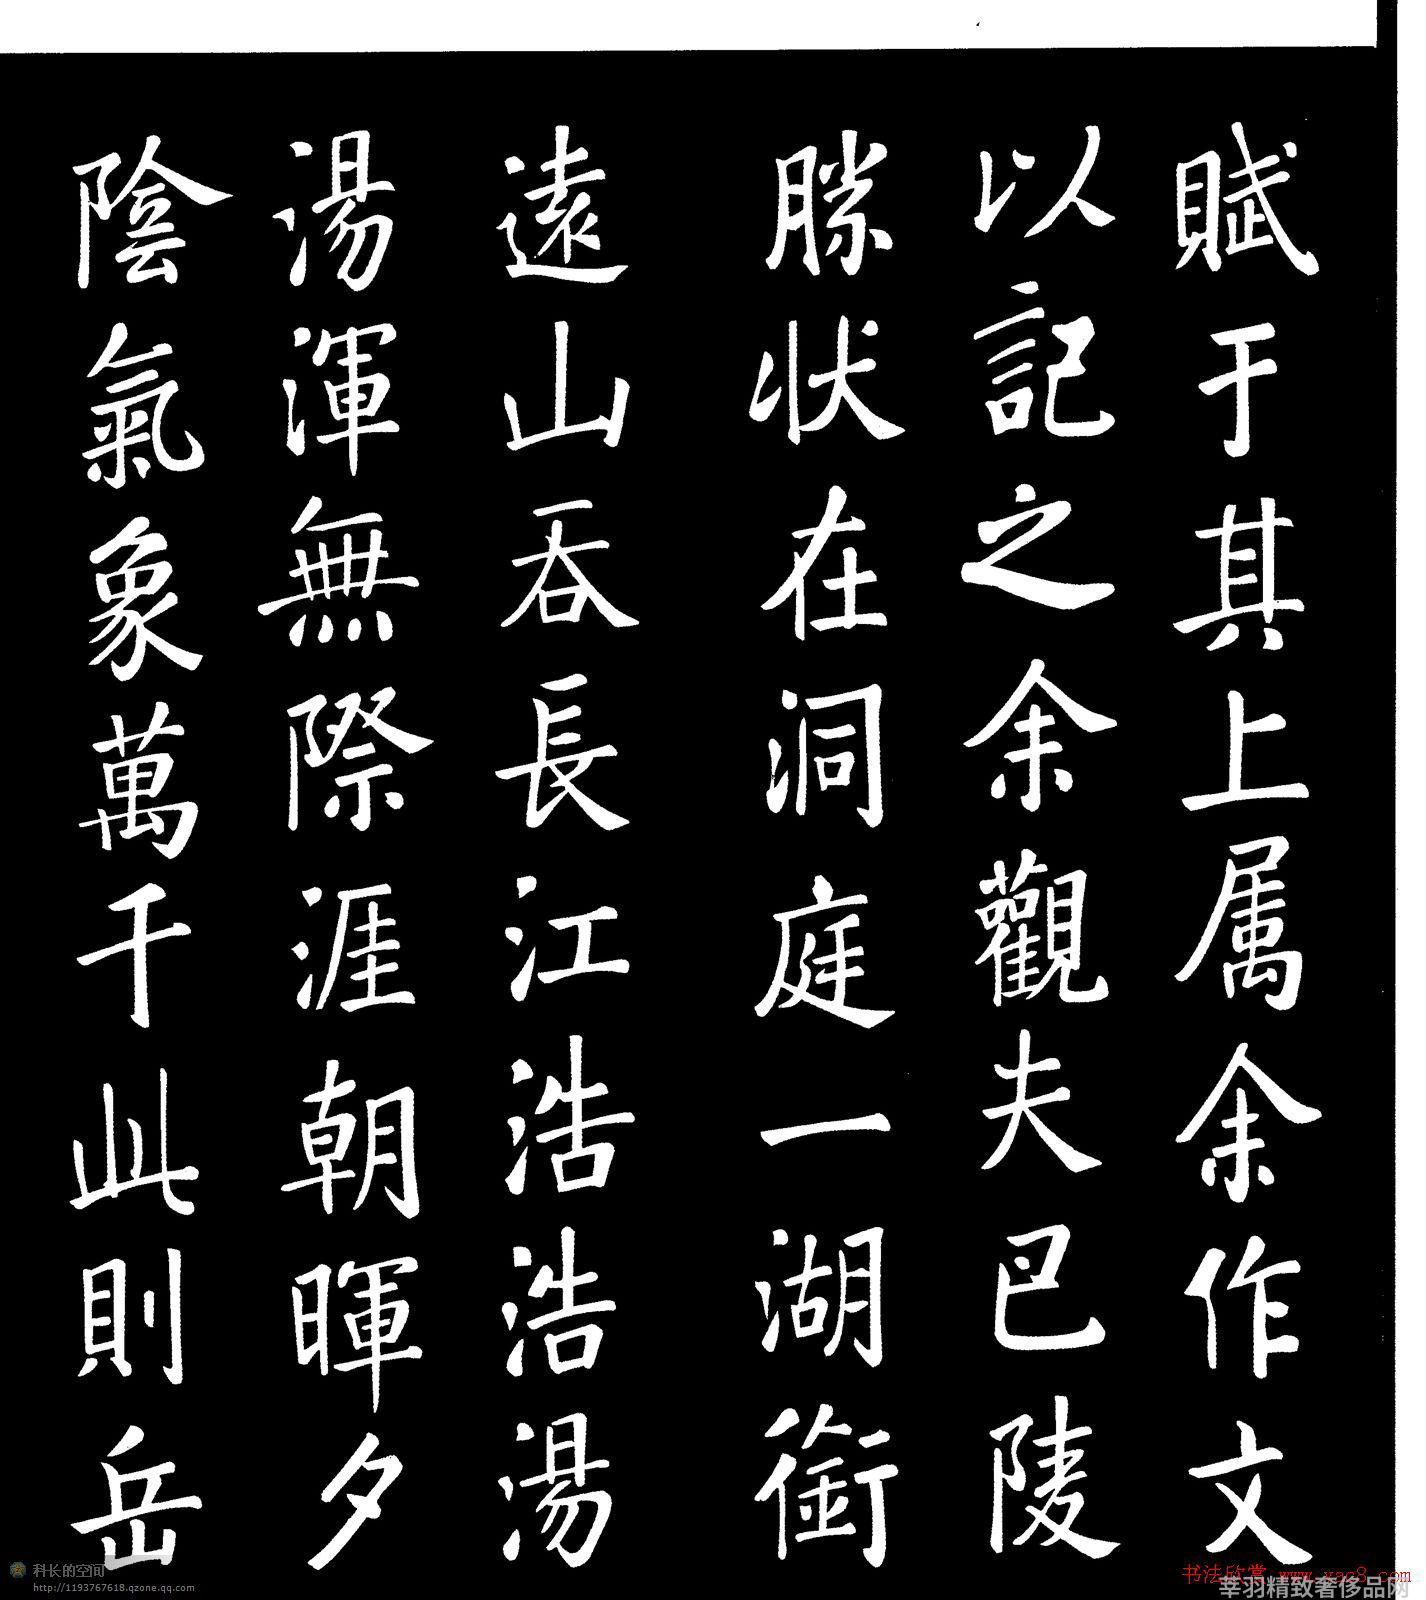 賦于其上属余作文
以記之余觀夫巴陵
勝状在洞庭一湖銜
遠山吞長江浩浩湯
湯渾無際涯朝暉夕
陰氣象萬千此則岳
科长的空间
http://1193767618.qzone.qq.com
书法欣赏 www.yac8.com
莘羽精致奢侈品网